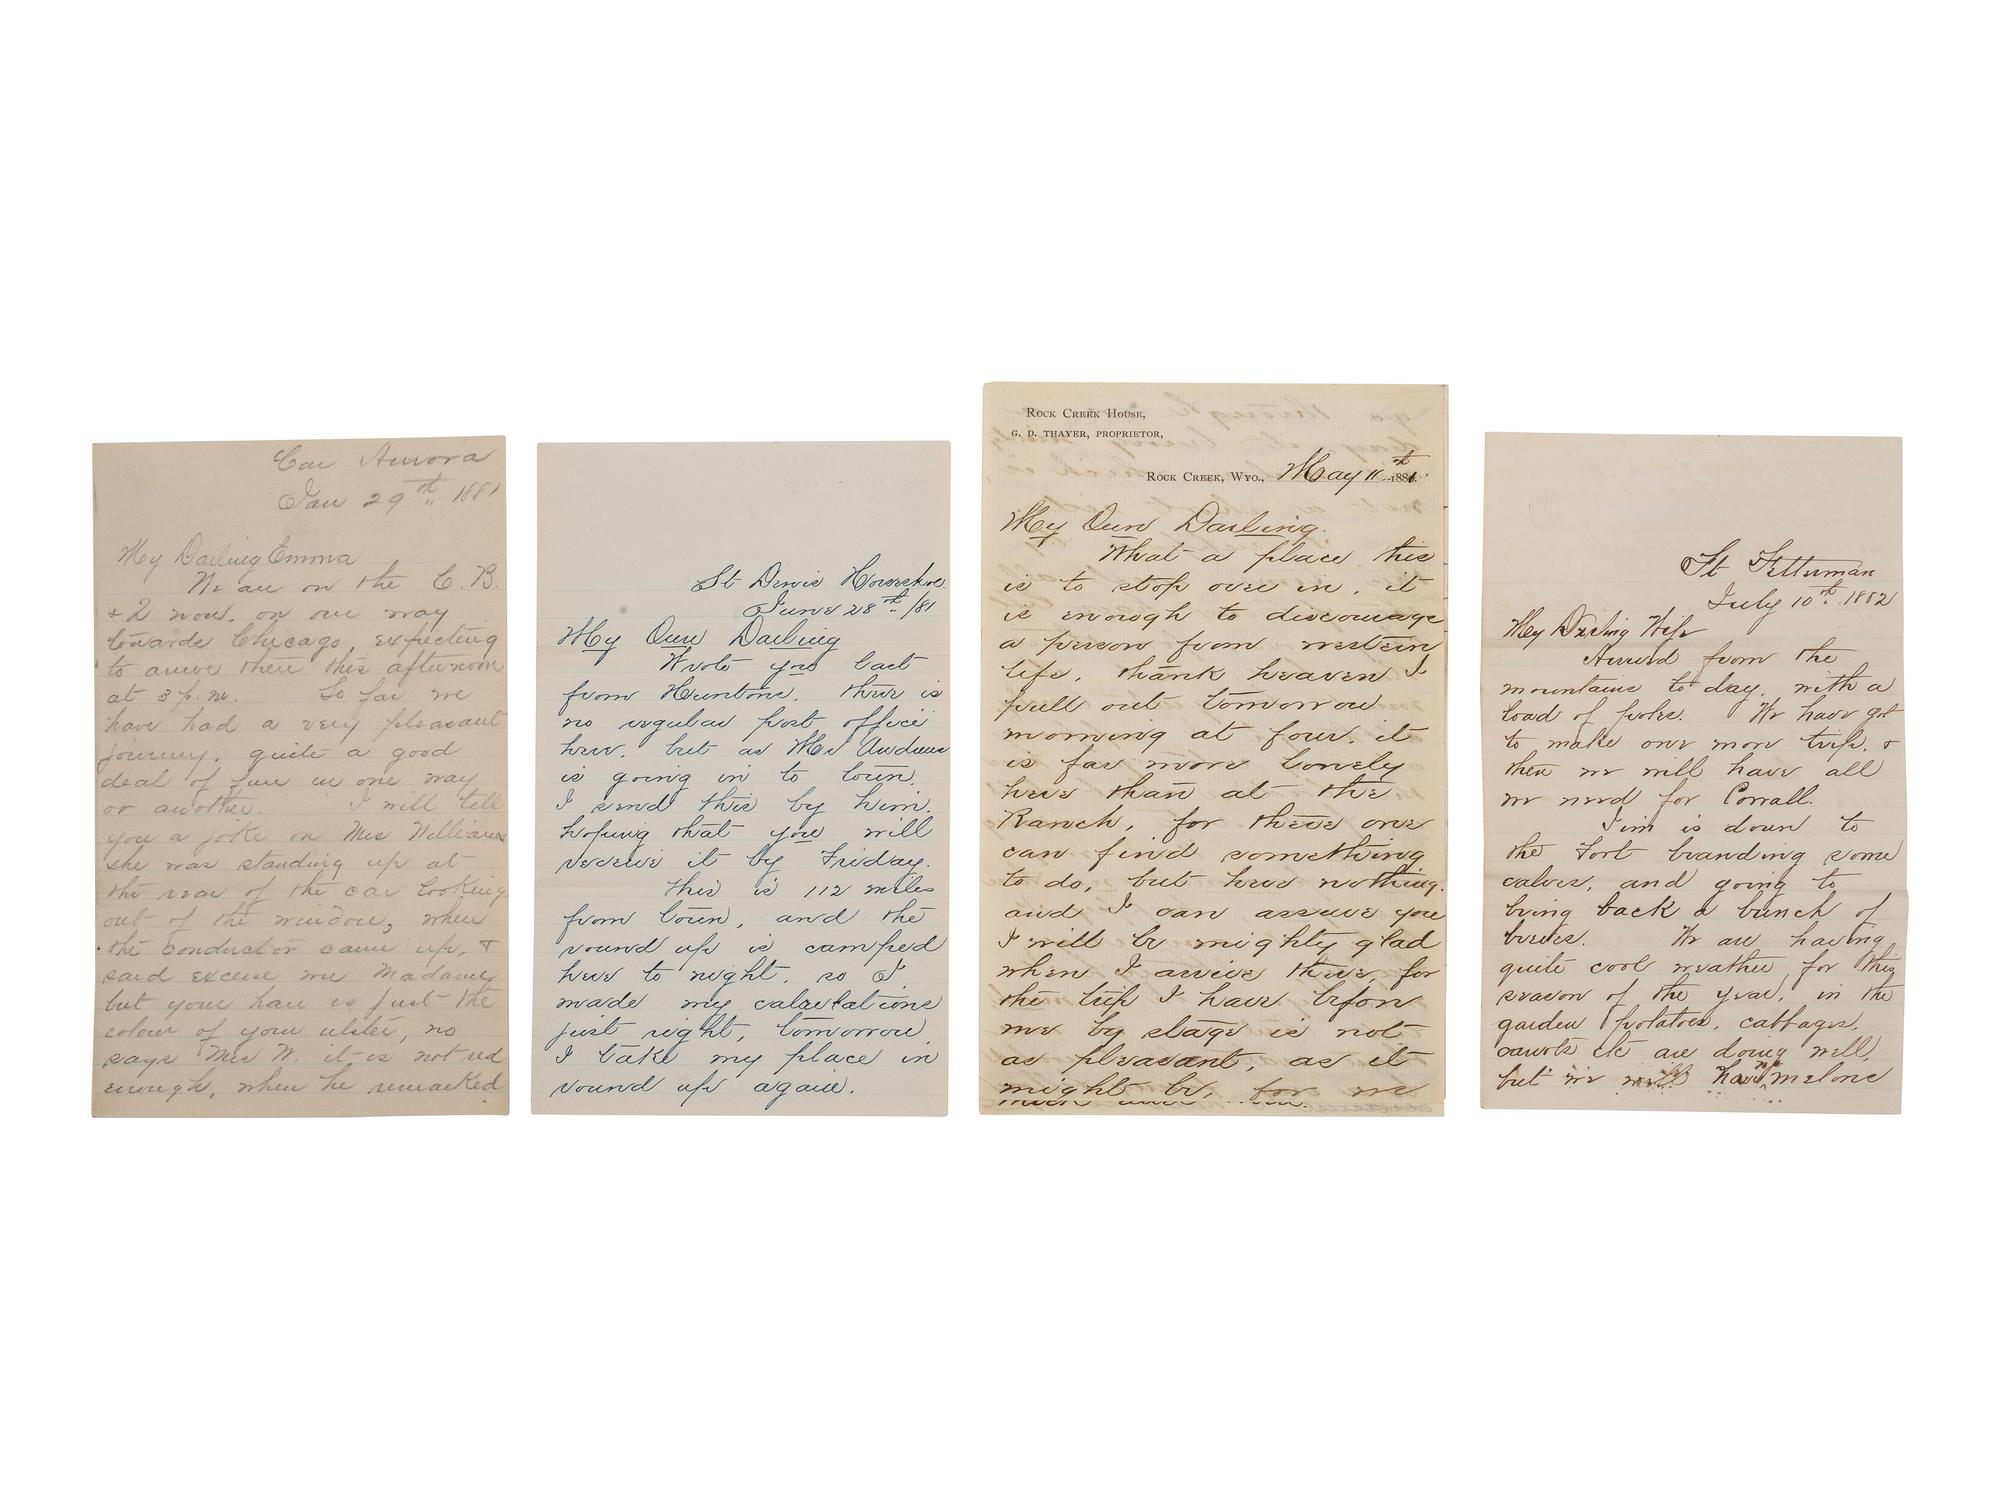 Car Aurora
Jan 29th 1881
My Darling Emma
We are on the C. B.
& Q now, on our way
towards Chicago, expecting
to arive there this afternoon
at 3 p.m. So far we
have had a very pleasant
journey, quite a good
deal of fun in one way
or another. I will tell
you a joke on Mrs Williams
she was standing up at
the rear of the car looking
out of the window, when
the conductor came up, &
said excuse me Madame
but your hair is just the
colour of your ulster, no
says Mrs W. it is not red
enough, when he remarked
St Denis Horseshoe
June 28th /81
My Own Darling
Wrote you last
from Huntons. there is
no regular post office
here, but as Mr Andrews
is going in to town.
I send this by him.
hoping that you will
receive it by Friday.
This is 112 miles
from town, and the
round up is camped
here to night. so I
made my calculations
just right, tomorrow
I take my place in
round up again.
Rock Creek House,
G. D. Thayer, Proprietor,
Rock Creek, Wyo., May 11th 1881.
My Own Darling.
What a place this
is to stop over in, it
is enough to discourage
a person from western
life. thank heaven I
pull out tomorrow
morning at four. it
is far more lonely
here than at the
Ranch, for there one
can find something
to do, but here nothing.
and I can assure you
I will be mighty glad
when I arrive there, for
the trip I have before
me by stage is not
as pleasant, as it
might be, for we
Ft Fetterman
July 10th 1882
My Darling Wife
Arrived from the
mountains to day, with a
load of poles. We have got
to make one more trip, &
then we will have all
we need for Corrall.
Jim is down to
the Fort branding some
calves, and going to
bring back a bunch of
beeves. We are having
quite cool weather for this
season of the year, in the
garden potatoes, cabbages,
carrots etc are doing well,
but we will have melons